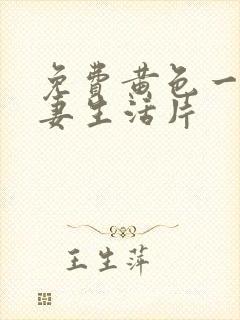 免費黄色一
妻生活片
王生萍